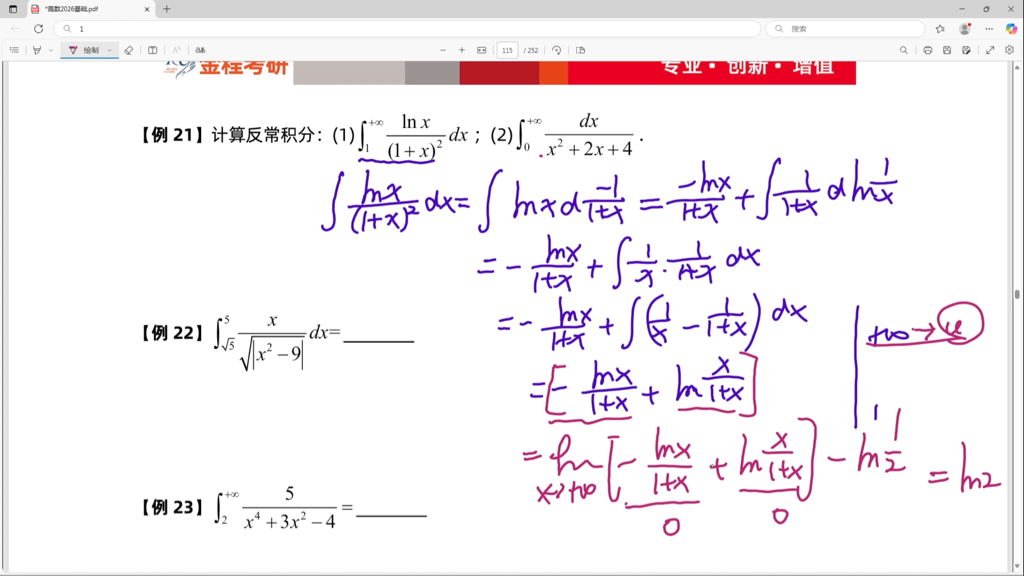 *高数2026基础.pdf
1
搜索
绘制
115 / 252
金程考研
专业·创新·增值
【例 21】计算反常积分：(1) ∫₁^{+∞} ln x/(1+x)² dx ；(2) ∫₀^{+∞} dx/(x²+2x+4) .
∫ lnx/(1+x)² dx = ∫ lnx d -1/(1+x) = -lnx/(1+x) + ∫ 1/(1+x) d ln x
= - lnx/(1+x) + ∫ 1/x · 1/(1+x) dx
= - lnx/(1+x) + ∫ (1/x - 1/(1+x)) dx
+∞ →
【例 22】∫_{√5}^5 x/√|x²-9| dx= ______
= [- lnx/(1+x) + ln x/(1+x)]
1
= lim x→+∞ [- lnx/(1+x) + ln x/(1+x)] - ln 1/2 = ln2
0 0
【例 23】∫₂^{+∞} 5/(x⁴+3x²-4) = ______